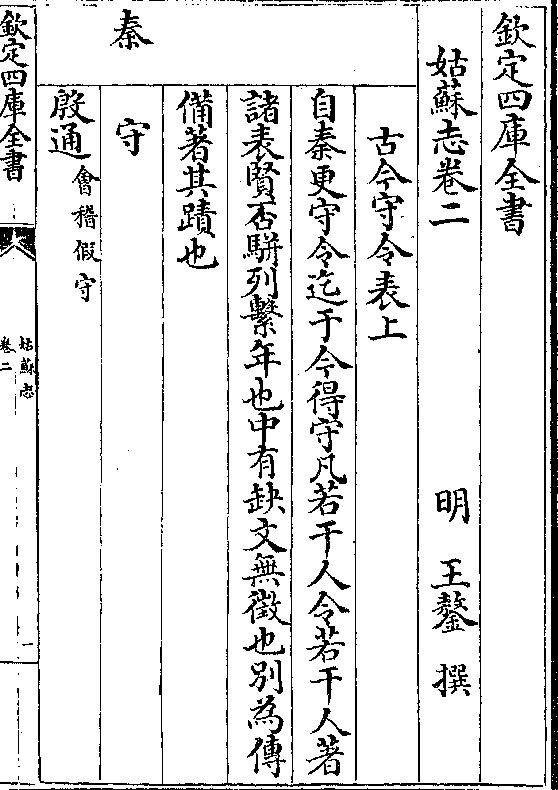 欽定四庫全書
姑蘇志卷二
明 王鏊 撰
古今守令表上
自秦更守令迄于今得守凡若干人令若干人著
諸表賢否駢列繫年也中有缺文無徵也別為傳
備著其蹟也
秦
守
殷通會稽假守
欽定四庫全書
姑蘇志
卷二
一